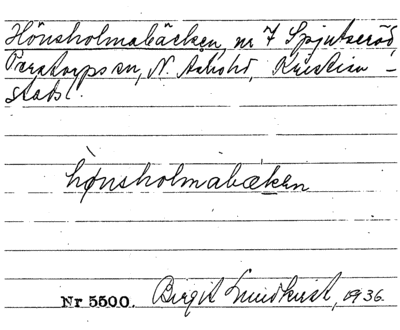 Hönsholmabäcken, nr 7 Spjutseröd,
Perstorps sn, N. Åsbo hd, Kristian-
stads l.
hø̀nsholmabæken
Nr 5500. Birgit Lundkvist, 1936.